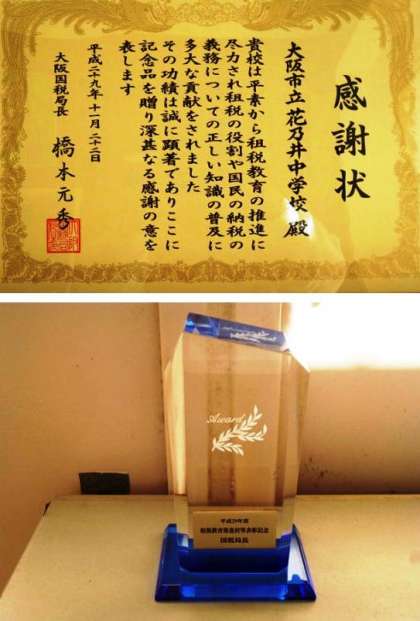 感謝状
大阪市立花乃井中学校 殿
貴校は平素から租税教育の推進に
尽力され租税の役割や国民の納税の
義務についての正しい知識の普及に
多大な貢献をされました
その功績は誠に顕著でありここに
記念品を贈り深甚なる感謝の意を
表します
平成二十九年十一月二十二日
大阪国税局長 橋本元秀
Award
平成29年度
租税教育推進校等表彰記念
国税局長